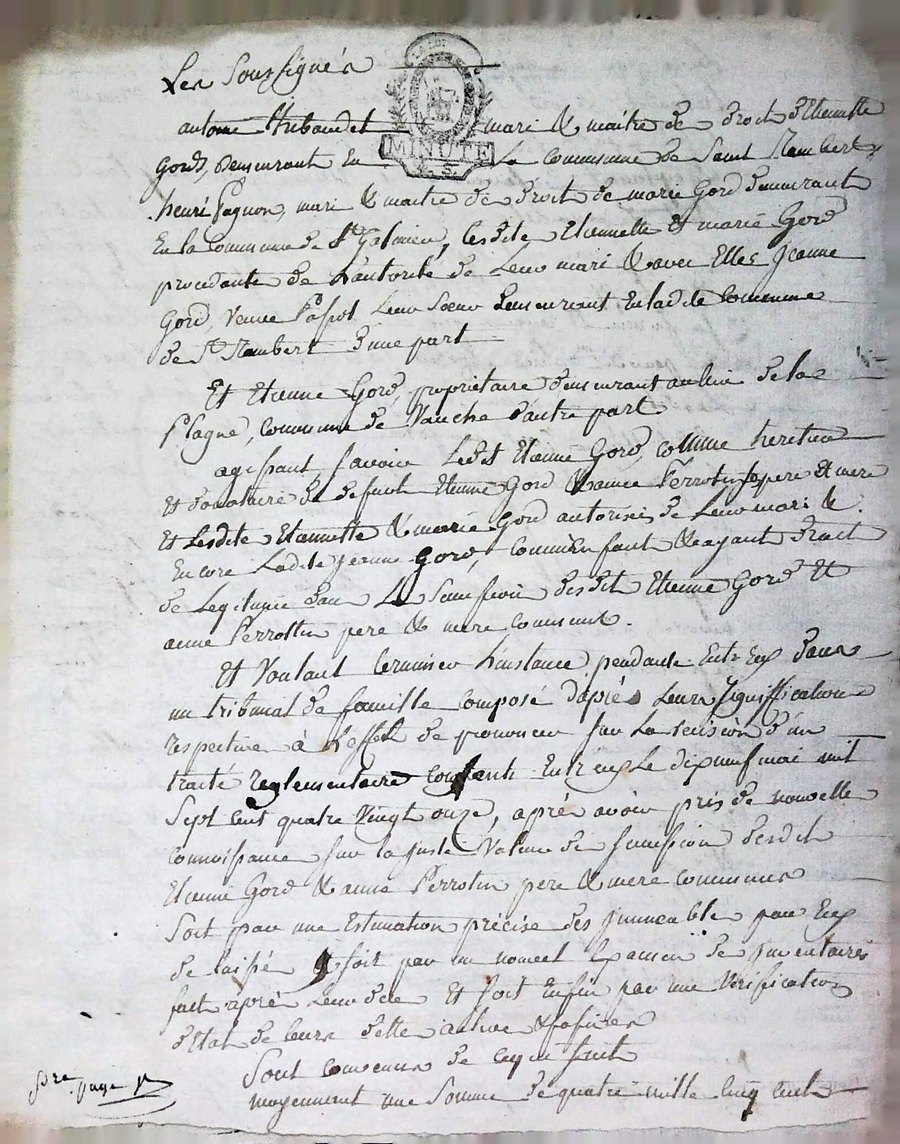 Les Soussignés
MINUTE
antoine thibaudet mari & maitre de droit d'Etiennette
Gord, demeurant en la commune de Saint Rambert,
henri pagnon, mari & maitre de droit de marie Gord demeurant
En la commune de St Galmier, lesdite Etiennette et marie Gord
procedante de L'autorité de Leur mari & avec Elles Jeanne
Gord, veuve Leur Soeur Demeurant En ladite Commune
de St Rambert d'une part
Et Etienne Gord, propriétaire demeurant au lieu de la
Plagne, commune de Vauche d'autre part
agissant savoir Ledit Etienne Gord, comme heritier
Et donataire de defunt Etienne Gord & anne Perrotin pere et mere
Et Lesdite Etiennette & marie Gord autorisés de Leur mari &
Encore Ladite jeanne Gord, comme Enfant & ayant droit
de Legitime dans La Succession desdit Etienne Gord Et
anne Perrottin pere & mere communs.
Et Voulant terminer L'instance pendante Entr'Eux dans
un tribunal de famille composé d'après Leurs Significations
respective à L'effet de prononcer sur La rescision d'un
traité reglementaire consenti Entr'eux Le dix neuf mai mil
Sept cent quatre vingt onze, après avoir pris de nouvelle
connoissance sur la juste Valeur de succession desdit
Etienne Gord & anne Perrotin pere & mere communs
Soit par une Estimation précise des jmmeuble par Eux
de laissé soit par un nouvel Examen de jnventaires
fait après Leur dece Et soit Enfin par une Verification
d'Etat de leurs dette active & passives
Sont convenus de ce qui suit
moyennant une Somme de quatre mille cinq cent
pre page